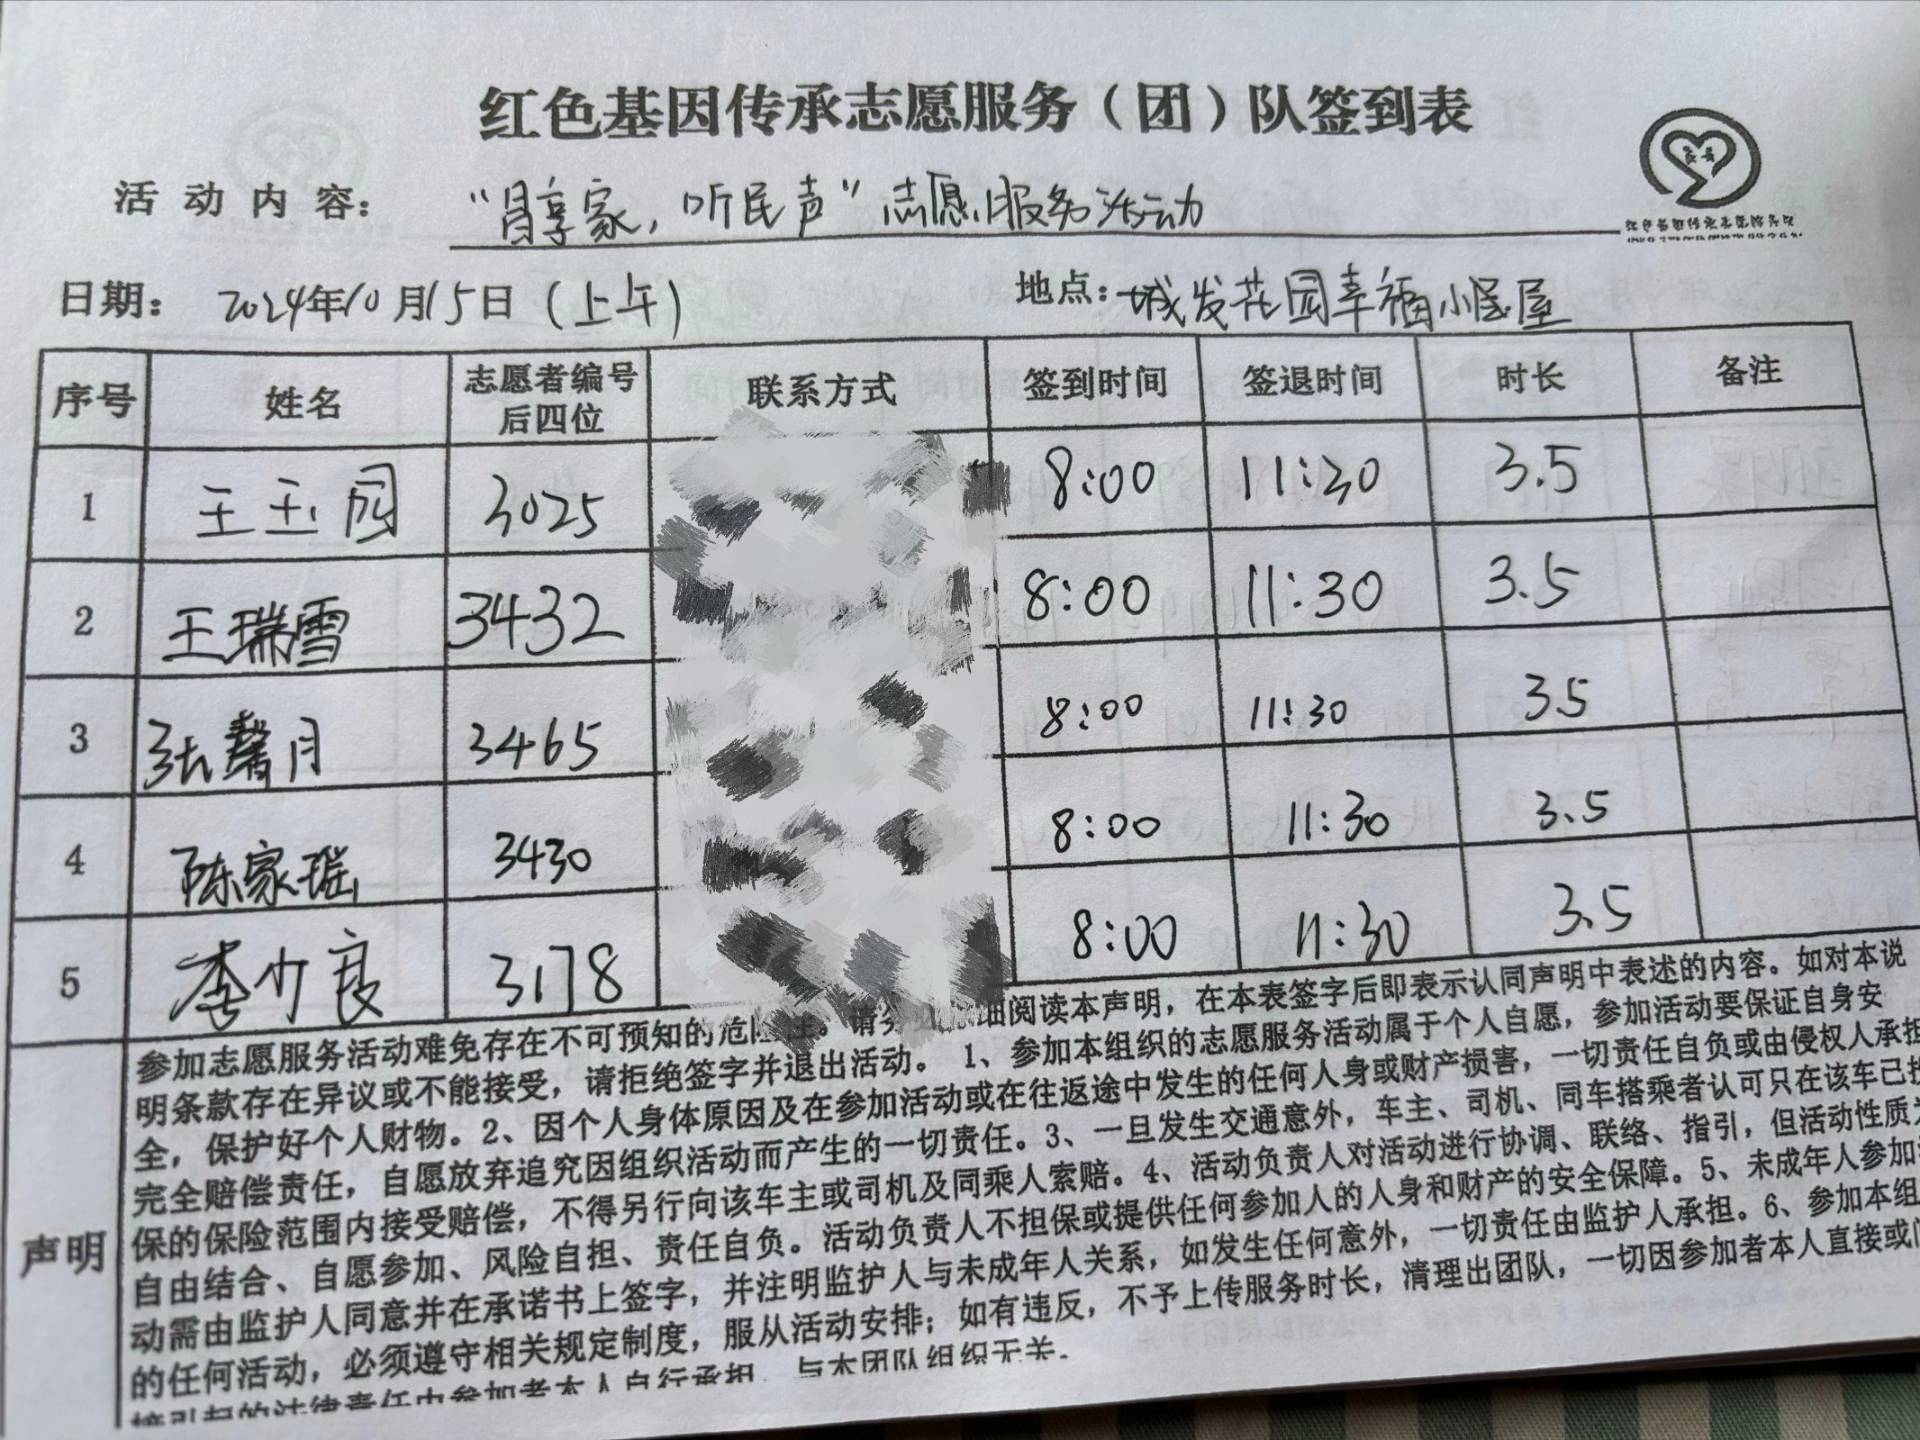 红色基因传承志愿服务（团）队签到表
活动内容： “冒享家，听民声”志愿服务活动
日期： 2024年10月15日（上午） 地点：城发花园幸福小屋
序号 姓名 志愿者编号后四位 联系方式 签到时间 签退时间 时长 备注
1 王玉园 3025 8:00 11:30 3.5
2 王瑞雪 3432 8:00 11:30 3.5
3 张馨月 3465 8:00 11:30 3.5
4 陈家瑶 3430 8:00 11:30 3.5
5 李少良 3178 8:00 11:30 3.5
声明
参加志愿服务活动难免存在不可预知的危险性。请务 细阅读本声明，在本表签字后即表示认同声明中表述的内容。如对本说
明条款存在异议或不能接受，请拒绝签字并退出活动。 1、参加本组织的志愿服务活动属于个人自愿，参加活动要保证自身安
全，保护好个人财物。2、因个人身体原因及在参加活动或在往返途中发生的任何人身或财产损害，一切责任自负或由侵权人承担
完全赔偿责任，自愿放弃追究因组织活动而产生的一切责任。3、一旦发生交通意外，车主、司机、同车搭乘者认可只在该车已投
保的保险范围内接受赔偿，不得另行向该车主或司机及同乘人索赔。4、活动负责人对活动进行协调、联络、指引，但活动性质为
自由结合、自愿参加、风险自担、责任自负。活动负责人不担保或提供任何参加人的人身和财产的安全保障。5、未成年人参加
动需由监护人同意并在承诺书上签字，并注明监护人与未成年人关系，如发生任何意外，一切责任由监护人承担。6、参加本组
的任何活动，必须遵守相关规定制度，服从活动安排；如有违反，不予上传服务时长，清理出团队，一切因参加者本人直接或间
接引起的法律责任由参加者本人自行承担，与本团队组织无关。